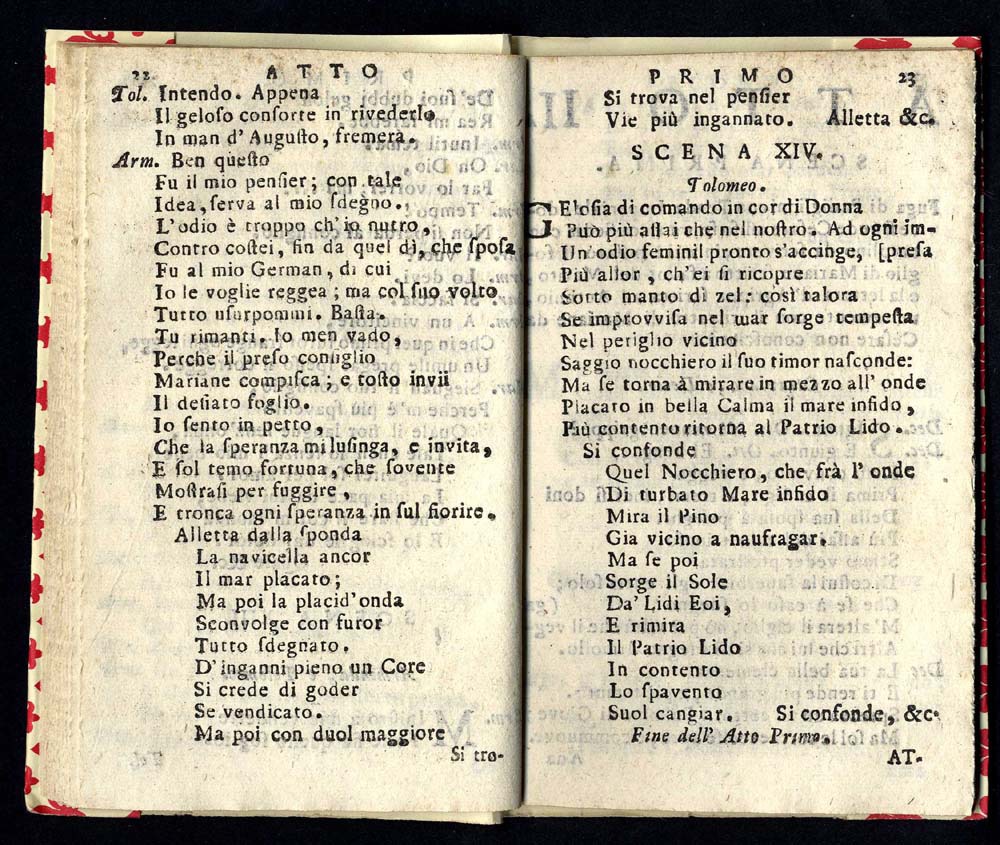 22 ATTO
Tol. Intendo. Appena
Il geloso consorte in rivederlo
In man d'Augusto, fremerà.
Arm. Ben questo
Fu il mio pensier; con tale
Idea, serva al mio sdegno.
L'odio è troppo ch'io nutro,
Contro costei, fin da quel dì, che sposa
Fu al mio German, di cui
Io le voglie reggea; ma col suo volto
Tutto usurpommi. Basta.
Tu rimanti. Io men vado,
Perche il preso consiglio
Mariane compisca; e tosto invii
Il desiato foglio.
Io sento in petto,
Che la speranza mi lusinga, e invita,
E sol temo fortuna, che sovente
Mostrasi per fuggire,
E tronca ogni speranza in sul fiorire.
Alletta dalla sponda
La navicella ancor
Il mar placato;
Ma poi la placid'onda
Sconvolge con furor
Tutto sdegnato.
D'inganni pieno un Core
Si crede di goder
Se vendicato.
Ma poi con duol maggiore
Si tro-
PRIMO 23
Si trova nel pensier
Vie più ingannato. Alletta &c.
SCENA XIV.
Tolomeo.
GElosia di comando in cor di Donna
Può più assai che nel nostro. Ad ogni im-
Un'odio feminil pronto s'accinge, [presa
Più allor, ch'ei si ricopre
Sotto manto di zel: così talora
Se improvvisa nel mar sorge tempesta
Nel periglio vicino
Saggio nocchiero il suo timor nasconde:
Ma se torna à mirare in mezzo all'onde
Placato in bella Calma il mare infido,
Più contento ritorna al Patrio Lido.
Si confonde
Quel Nocchiero, che frà l'onde
Di turbato Mare infido
Mira il Pino
Gia vicino a naufragar.
Ma se poi
Sorge il Sole
Da' Lidi Eoi,
E rimira
Il Patrio Lido
In contento
Lo spavento
Suol cangiar. Si confonde, &c.
Fine dell'Atto Primo.
AT-